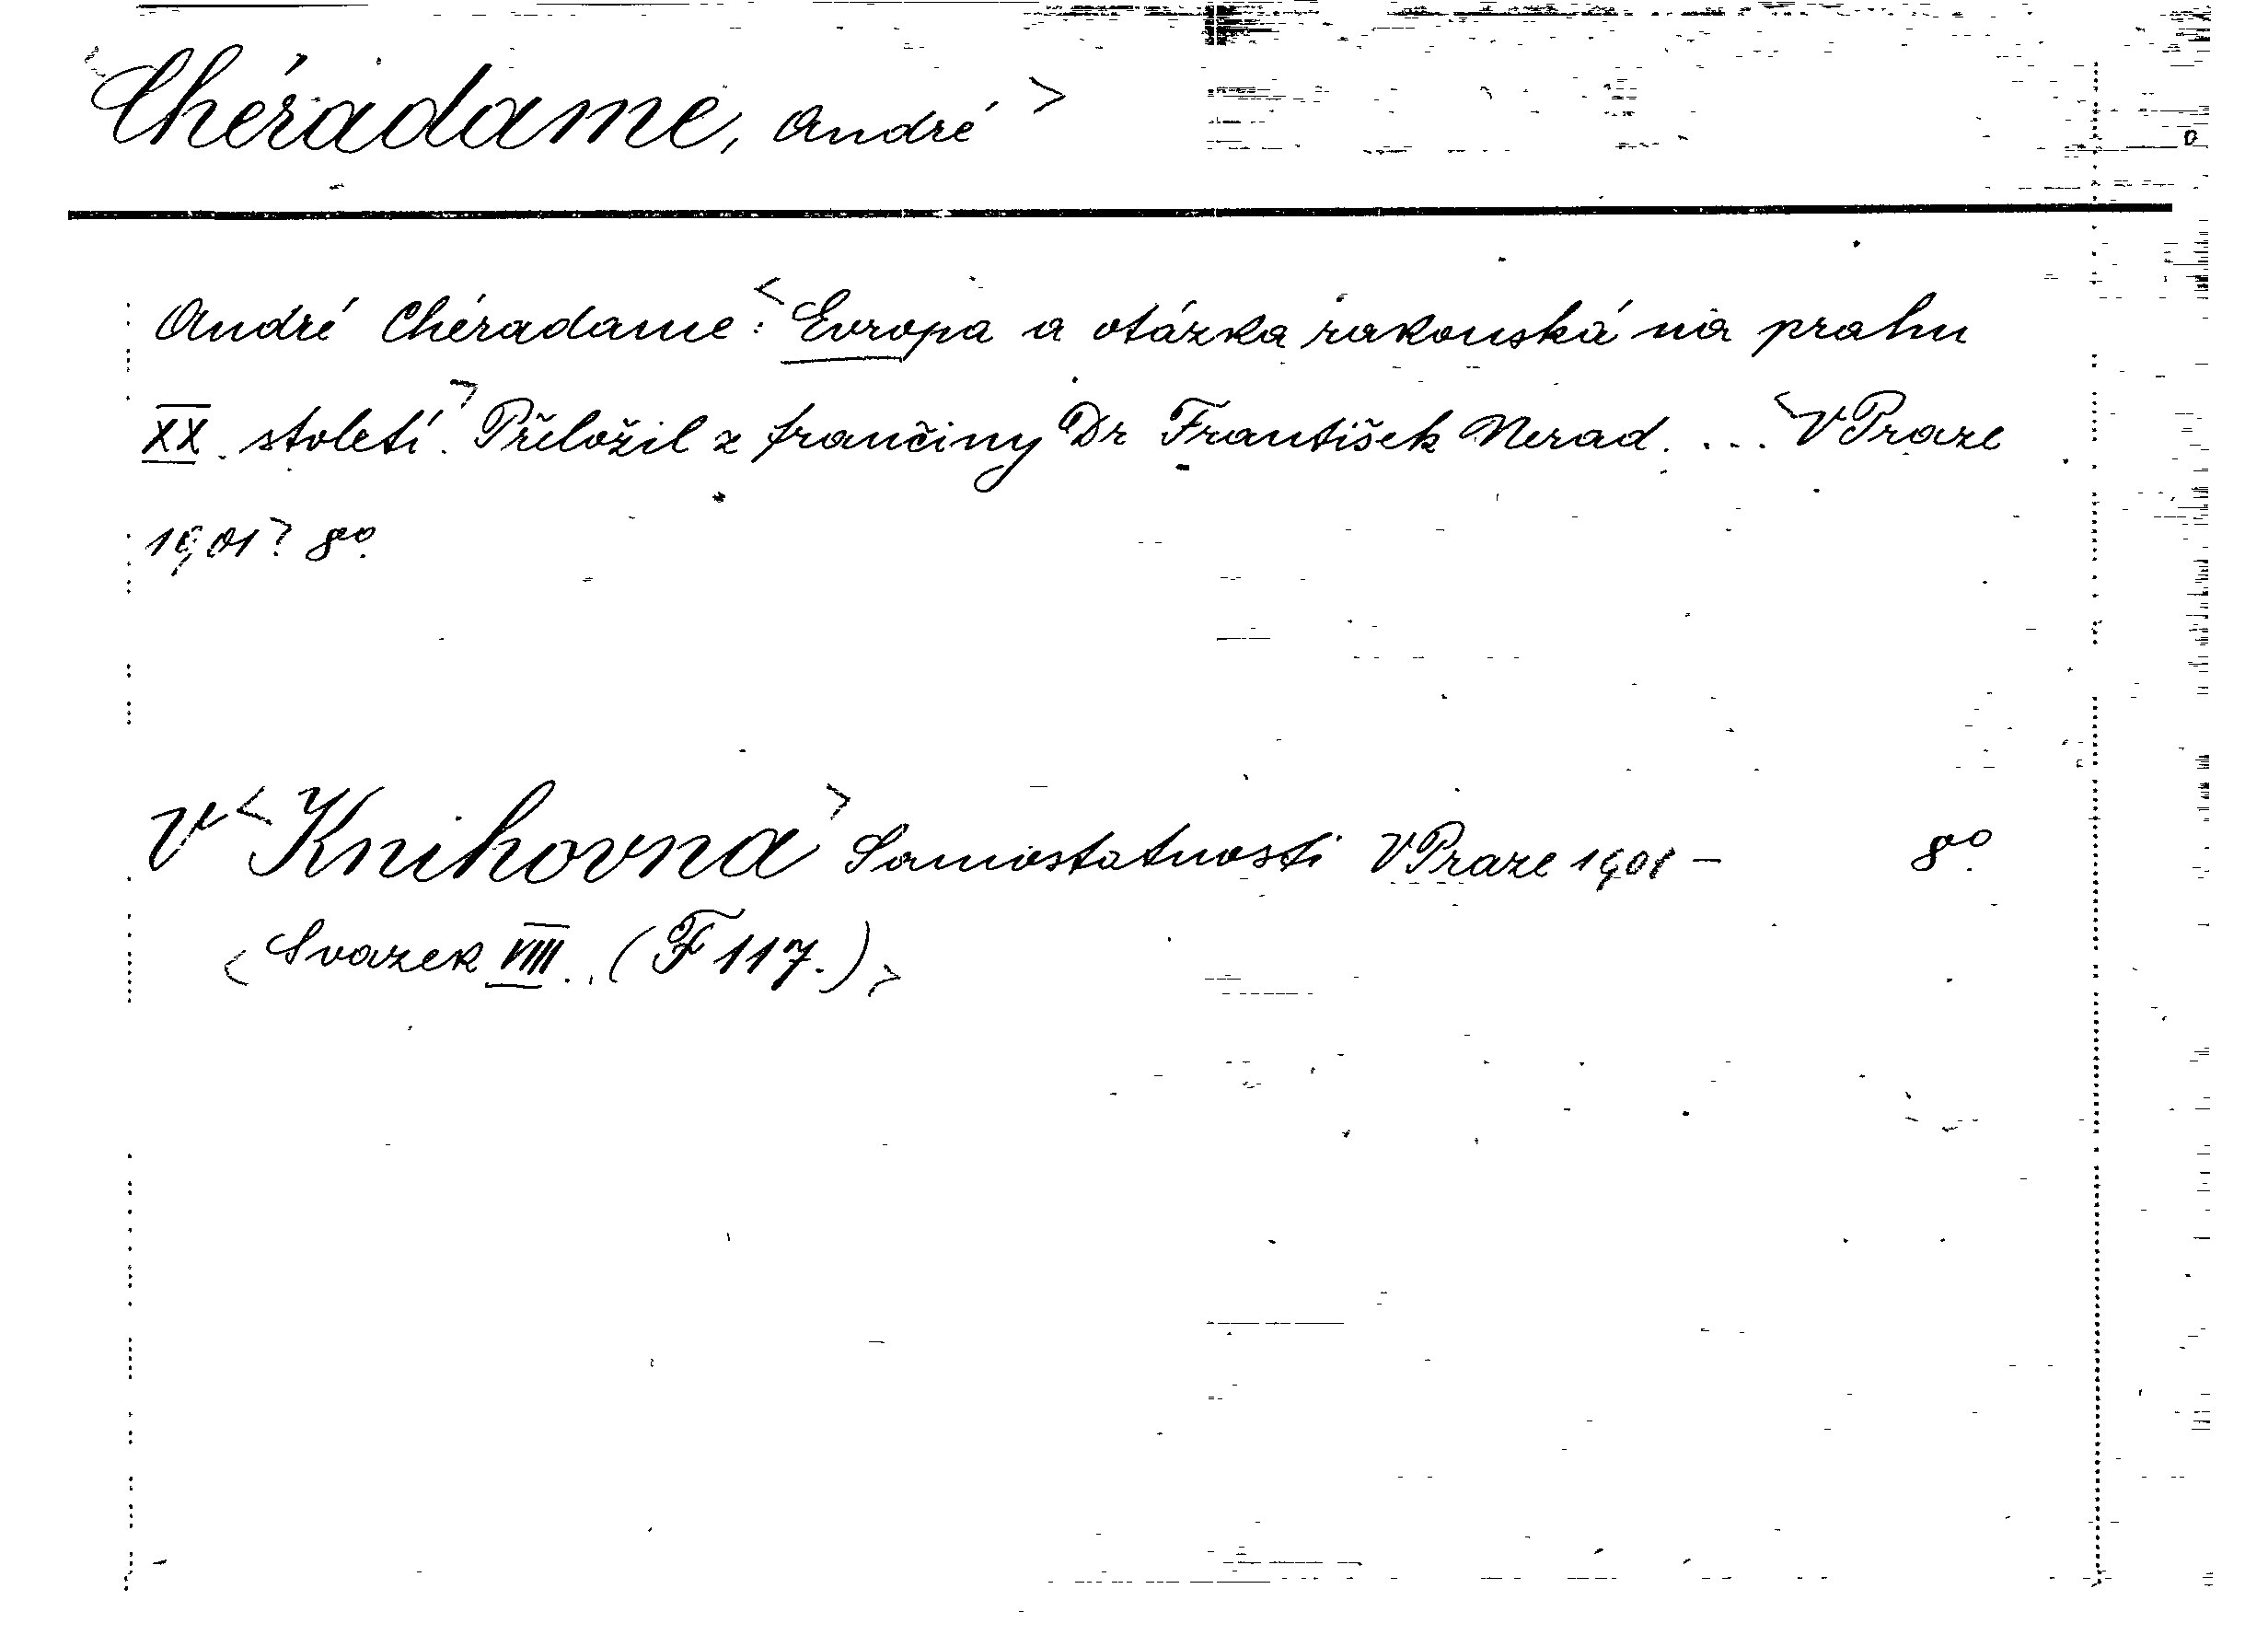 <Chéradame, André>
André Chéradame: <Evropa a otázka rakouská na prahu
XX. století.> Přeložil z frančiny Dr František Nerad. ... <V Praze
1901> 8º.
V <Knihovna> Samostatnosti V Praze 1901 – 8º.
<Svazek VIII.. (F 117.)>